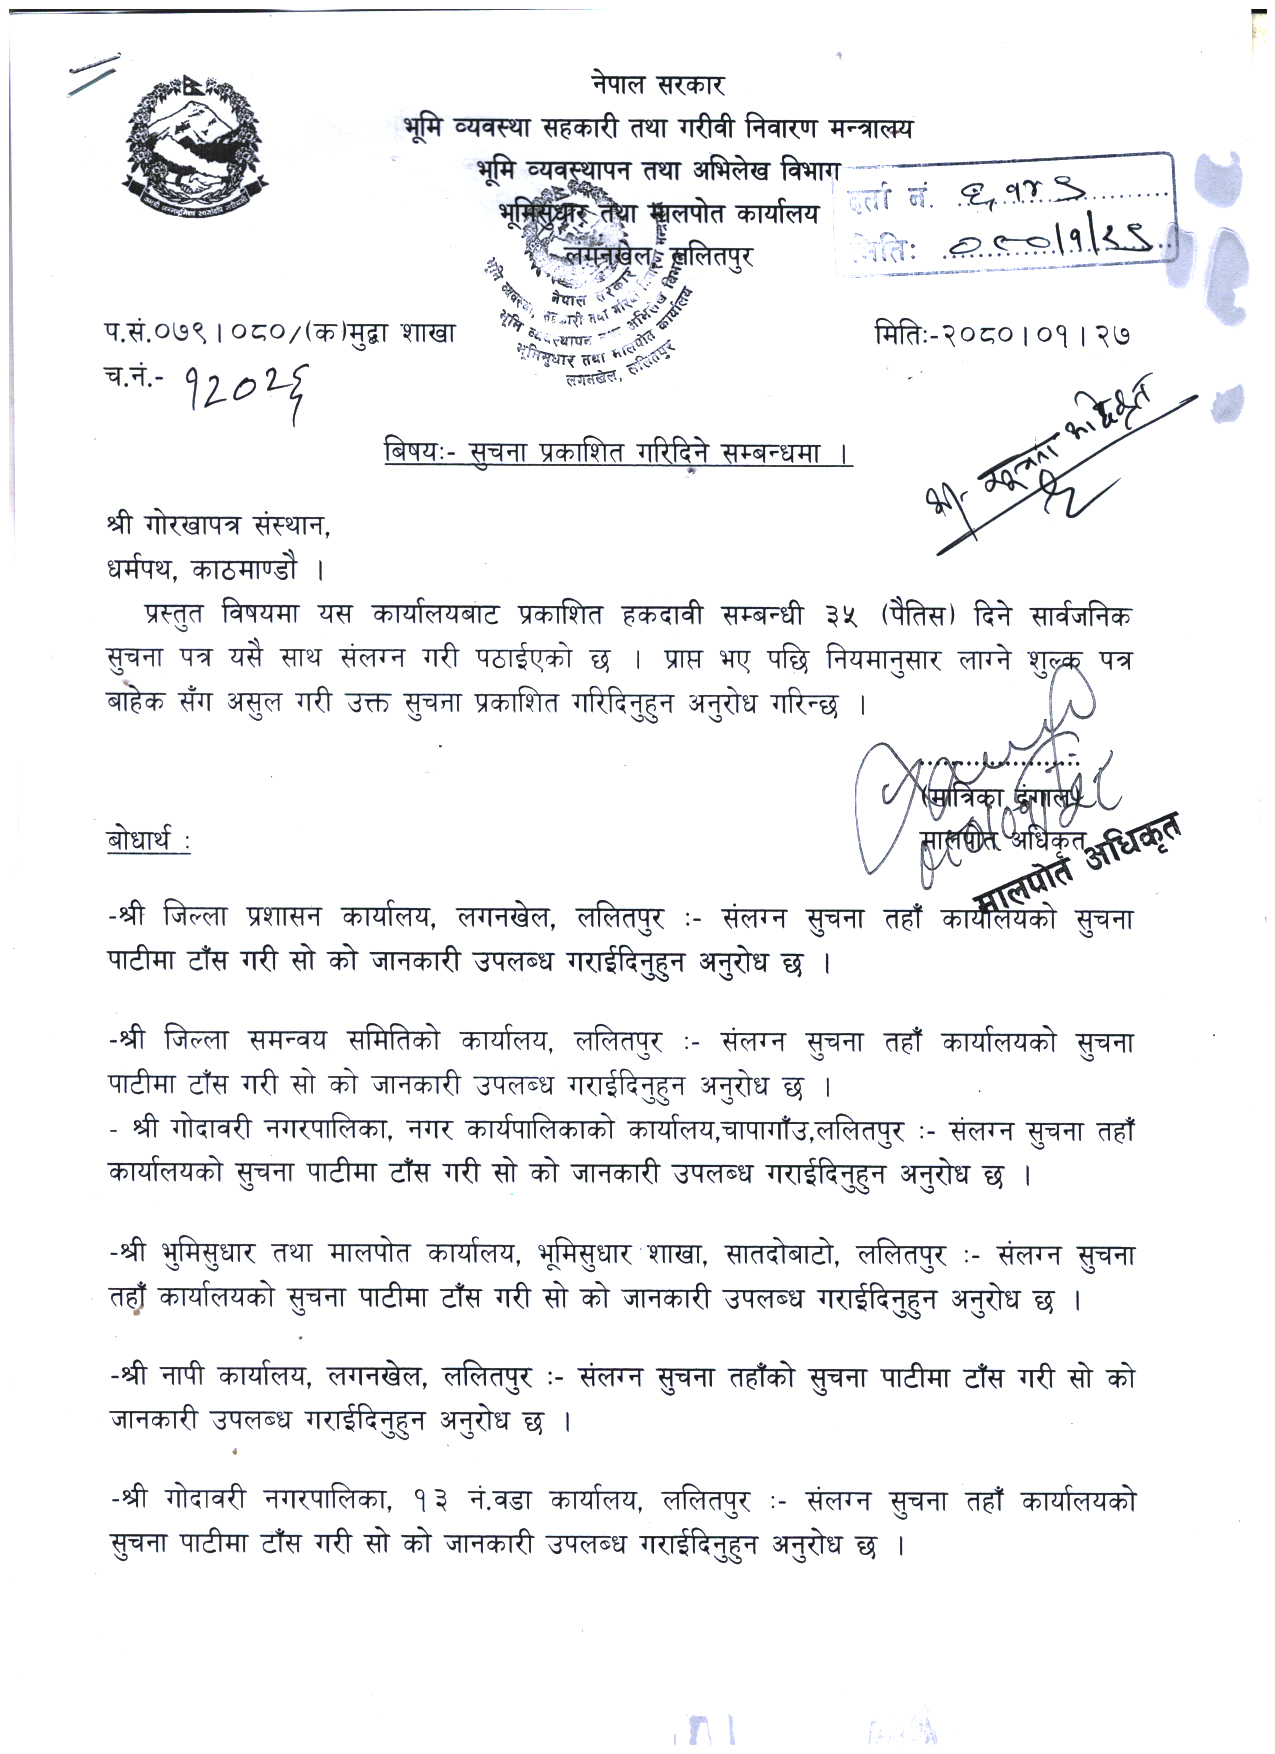 नेपाल सरकार
भूमि व्यवस्था सहकारी तथा गरीवी निवारण मन्त्रालय
भूमि व्यवस्थापन तथा अभिलेख विभाग
भूमिसुधार तथा मालपोत कार्यालय
लगनखेल, ललितपुर
दर्ता नं.
मितिः
प.सं.०७९।०८०/(क)मुद्वा शाखा
मितिः-२०८०।०१।२७
च.नं.- १२०२६
नेपाल सरकार
भूमिसुधार तथा मालपोत कार्यालय
लगनखेल, ललितपुर
बिषयः- सुचना प्रकाशित गरिदिने सम्बन्धमा ।
श्री गोरखापत्र संस्थान,
धर्मपथ, काठमाण्डौ ।
प्रस्तुत विषयमा यस कार्यालयबाट प्रकाशित हकदावी सम्बन्धी ३५ (पैतिस) दिने सार्वजनिक
सुचना पत्र यसै साथ संलग्न गरी पठाईएको छ । प्राप्त भए पछि नियमानुसार लाग्ने शुल्क पत्र
बाहेक सँग असुल गरी उक्त सुचना प्रकाशित गरिदिनुहुन अनुरोध गरिन्छ ।
(मात्रिका दंगाल)
मालपोत अधिकृत
मालपोत अधिकृत
बोधार्थ :
-श्री जिल्ला प्रशासन कार्यालय, लगनखेल, ललितपुर :- संलग्न सुचना तहाँ कार्यालयको सुचना
पाटीमा टाँस गरी सो को जानकारी उपलब्ध गराईदिनुहुन अनुरोध छ ।
-श्री जिल्ला समन्वय समितिको कार्यालय, ललितपुर :- संलग्न सुचना तहाँ कार्यालयको सुचना
पाटीमा टाँस गरी सो को जानकारी उपलब्ध गराईदिनुहुन अनुरोध छ ।
- श्री गोदावरी नगरपालिका, नगर कार्यपालिकाको कार्यालय,चापागाँउ,ललितपुर :- संलग्न सुचना तहाँ
कार्यालयको सुचना पाटीमा टाँस गरी सो को जानकारी उपलब्ध गराईदिनुहुन अनुरोध छ ।
-श्री भुमिसुधार तथा मालपोत कार्यालय, भूमिसुधार शाखा, सातदोबाटो, ललितपुर :- संलग्न सुचना
तहाँ कार्यालयको सुचना पाटीमा टाँस गरी सो को जानकारी उपलब्ध गराईदिनुहुन अनुरोध छ ।
-श्री नापी कार्यालय, लगनखेल, ललितपुर :- संलग्न सुचना तहाँको सुचना पाटीमा टाँस गरी सो को
जानकारी उपलब्ध गराईदिनुहुन अनुरोध छ ।
-श्री गोदावरी नगरपालिका, १३ नं.वडा कार्यालय, ललितपुर :- संलग्न सुचना तहाँ कार्यालयको
सुचना पाटीमा टाँस गरी सो को जानकारी उपलब्ध गराईदिनुहुन अनुरोध छ ।